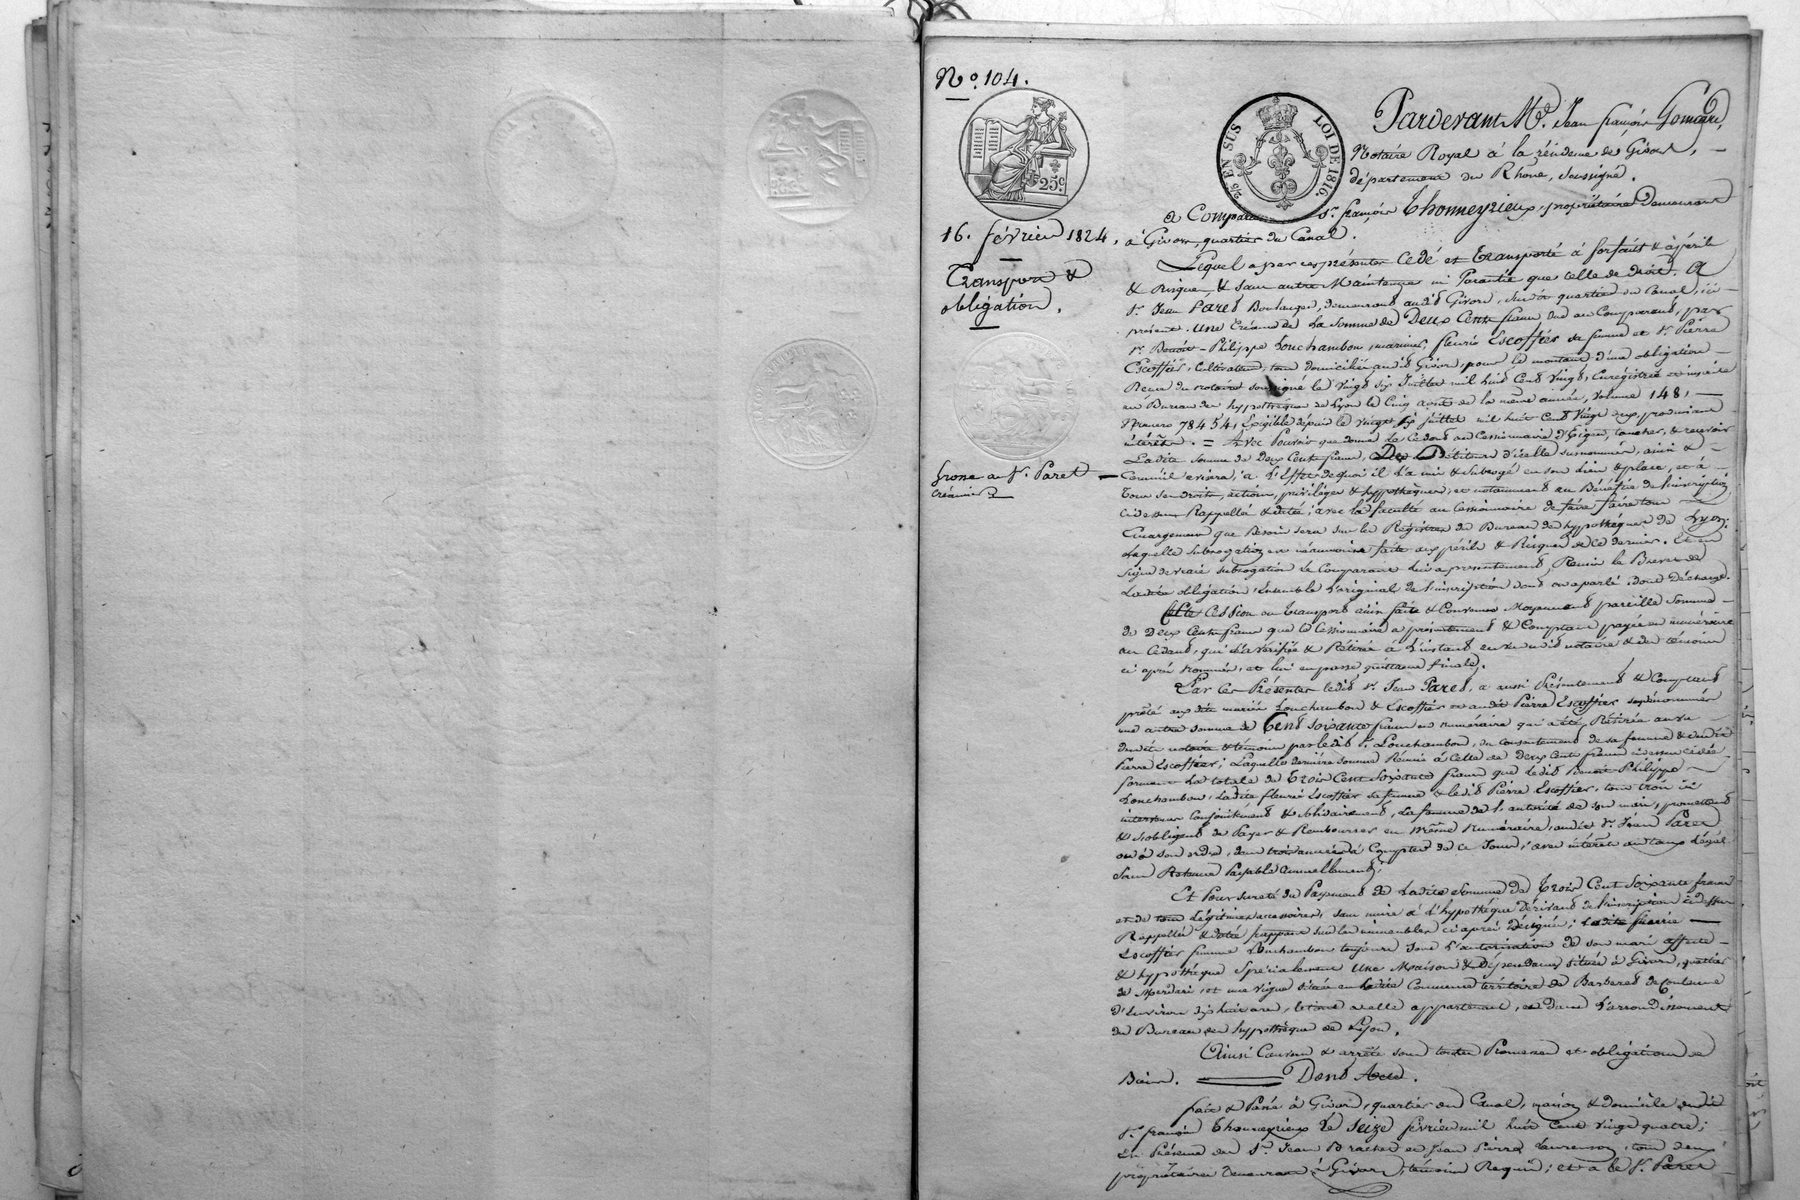 N.º 104.
25 c.
2/5 EN SUS LOI DE 1816.
16. février 1824.
Transport &
obligation.
Grosse au Sr. Paret
Créancier
Pardevant Me. Jean françois Gomard,
Notaire Royal à la résidence de Givors,
département du Rhone, soussigné.
a Comparu Sr. françois Thonneyrieux, propriétaire demeurant
à Givors, quartier du Canal.
Lequel a par ces présentes Cedé et transporté à forfait & à péril
& risque, & sans autre Maintenue ni Garantie que celle de droit. A
Sr. Jean Paret Boulanger, demeurant audit Givors, susdit quartier du Canal, ici
présent. Une Créance de La Somme de Deux Cents francs due au Comparant, par
Sr. Benoît-Philippe Louchambon, marinier, fleurie Escoffier sa femme et Sr. Pierre
Escoffier, Cultivateur, tous domiciliés audit Givors, pour le montant d'une obligation
Recue du notaire soussigné le vingt six Juillet mil huit Cent vingt, Enregistrée et inscrite
au Bureau des hypothèques de Lyon le Cinq août de la même année, volume 148,
Numéro 78454, Exigible depuis le vingt six Juillet mil huit Cent vingt deux, produisant
intérêts. = Avec Pouvoir que donne le Cedant au Cessionnaire d'Exiger, toucher, & recevoir
Ladite somme de Deux Cents francs, Des Débiteurs d'icelle susnommés, ainsi &
Comme il avisera; à L'Effet de quoi il L'a mis & subrogé en son Lieu & place, et à
Tous ses droits, actions, privilèges & hypothèques, et notamment au Bénéfice de l'inscription
ci dessus Rappellée & datée; avec la faculté au Cessionnaire de faire faire tous
Emargemens que Besoin sera sur les Registres du Bureau des hypothèques de Lyon.
Laquelle subrogation est néanmoins faite aux périls & Risques de ce dernier. Et en
signe de vraie subrogation le Comparant lui a présentement Remis le Brevet de
Ladite obligation, Ensemble L'original de l'inscription dont on a parlé. dont Décharge.
Cette Cession ou Transport ainsi faite & Convenue Moyennant pareille Somme
de Deux Cents francs que le Cessionnaire a présentement & Comptant payée en numéraire
au Cedant, qui l'a vérifiée & Retirée à L'instant en vu dudit notaire & des témoins
ci après nommés, et lui en passe quittance finale.
Par Ces Présentes ledit Sr. Jean Paret, a aussi Présentement & Comptant
prêté aux dits mariés Louchambon & Escoffier et audit Pierre Escoffier susnommés
une autre somme de Cent soixante francs en numéraire qui a été Retirée au vu
dudit notaire & témoins par ledit Sr. Louchambon, du consentement de sa femme & dudit
Pierre Escoffier; Laquelle dernière somme Réunie à Celle de deux Cents francs ci dessus cédée
forment La totale de Trois Cent Soixante francs que ledit Benoit Philippe
Louchambon, Ladite fleurie Escoffier sa femme & ledit Pierre Escoffier, tous trois ici
intervenus Conjointement & Solidairement, La femme de L'autorité de son mari, promettent
& s'obligent de Payer & Rembourser en même Numéraire, audit Sr. Jean Paret
ou à son ordre, dans trois années à Compter de ce Jour, avec intérêts au taux Légal
Sans Retenue Payable Annuellement.
Et Pour sureté du Payement de Ladite Somme de Trois Cent Soixante francs
et de tous Légitimes accessoires, sans nuire à L'hypothèque Dérivant de l'inscription ci dessus
Rappellée & datée frappant sur les immeubles ci après Désignés; Ladite fleurie
Escoffier femme Louchambon toujours sous L'autorisation de son mari affecte
& hypothèque Spécialement Une Maison & Dépendances située à Givors, quartier
de Merdari, et une vigne située en Ladite Commune territoire de Barberet de Contenue
d'Environ dix huit ares, le tout à elle appartenant, et dans L'arrondissement
du Bureau des hypothèques de Lyon.
Ainsi Convenu & arrêté sous toutes Promesses et obligations de
Biens. Dont Acte.
fait & Passé à Givors, quartier du Canal, maison & domicile dudit
Sr. françois Thonneyrieux Le Seize février mil huit Cent Vingt quatre;
En Présence des Srs. Jean Bracher et Jean Pierre Laurenson, tous deux
propriétaires demeurant à Givors, témoins Requis; et a le Sr. Paret